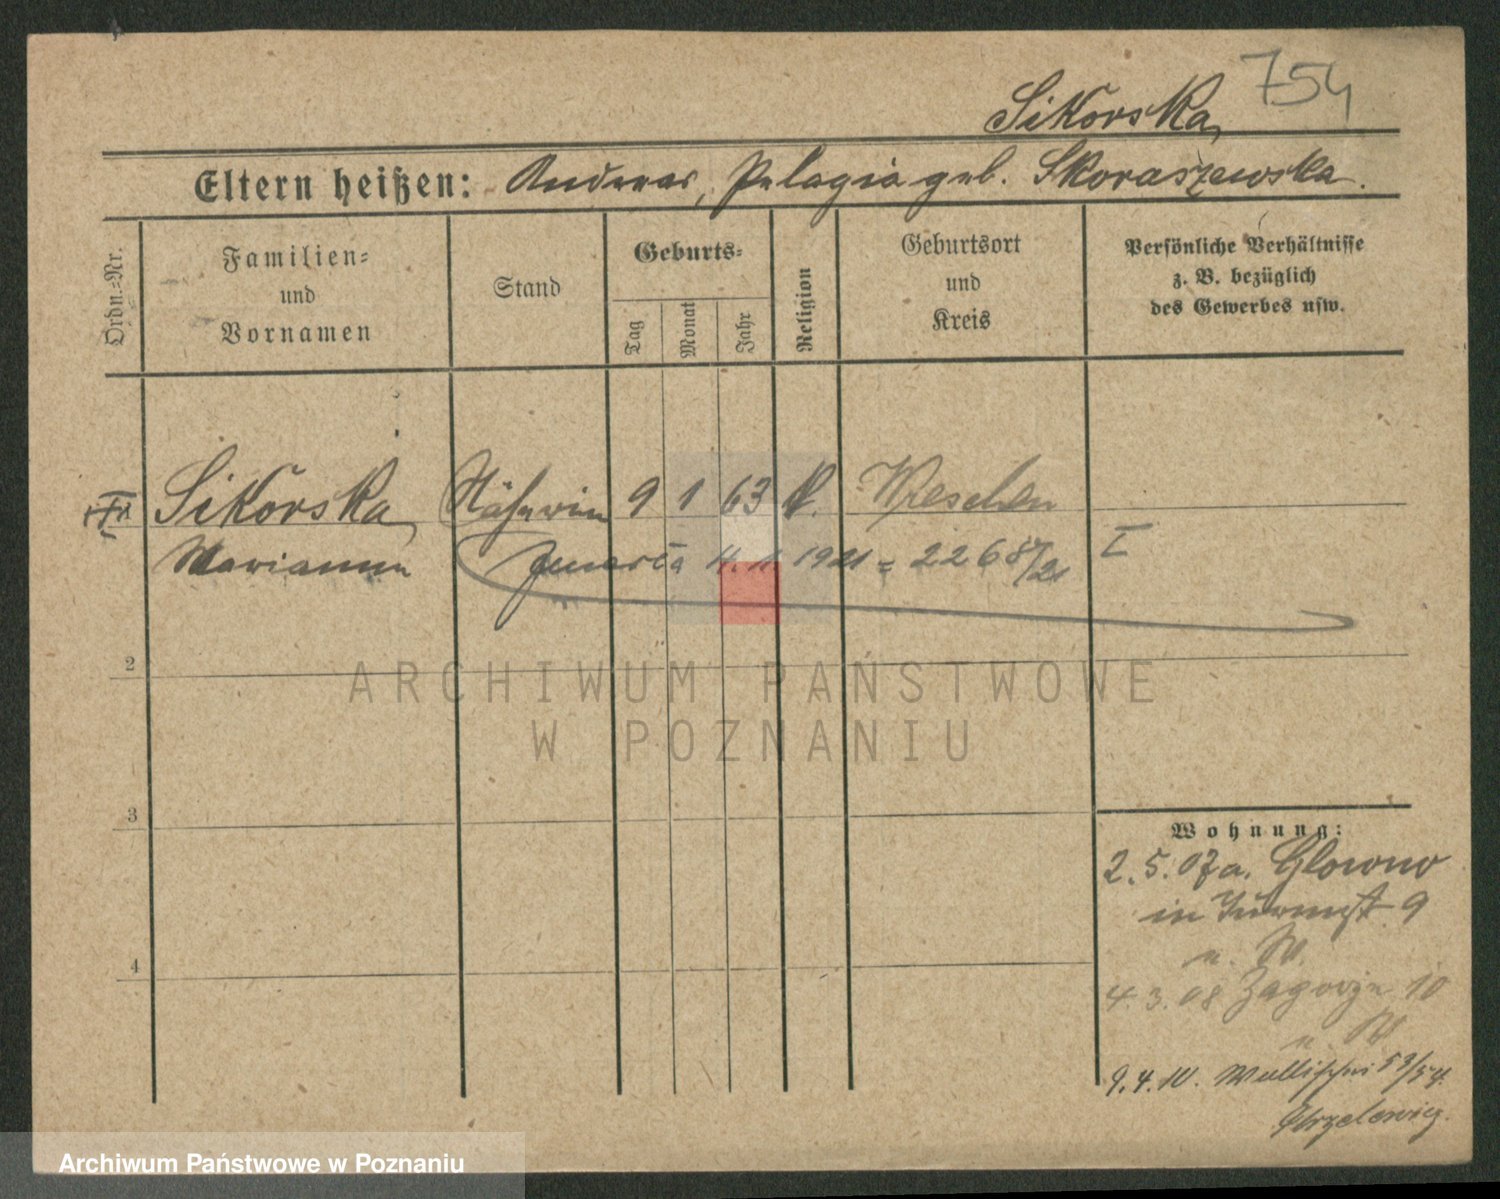 754
Sikorska
Eltern heißen: Andreas, Pelagia geb. Skoraszewska.
Ordn.-Nr.
Familien-
und
Vornamen
Stand
Geburts-
Tag
Monat
Jahr
Religion
Geburtsort
und
Kreis
Persönliche Verhältnisse
z. B. bezüglich
des Gewerbes usw.
Sikorska Näherin 9 1 63 k. Wreschen
Marianna zmarła 4. 1. 1921 = 2268/21 I
2
ARCHIWUM PAŃSTWOWE
W POZNANIU
3
Wohnung:
2.5.07 a. Glowno
in Turmst 9
4
4.3.08 Zagorze 10
9.4.10. Wallischei 53/54.
Archiwum Państwowe w Poznaniu